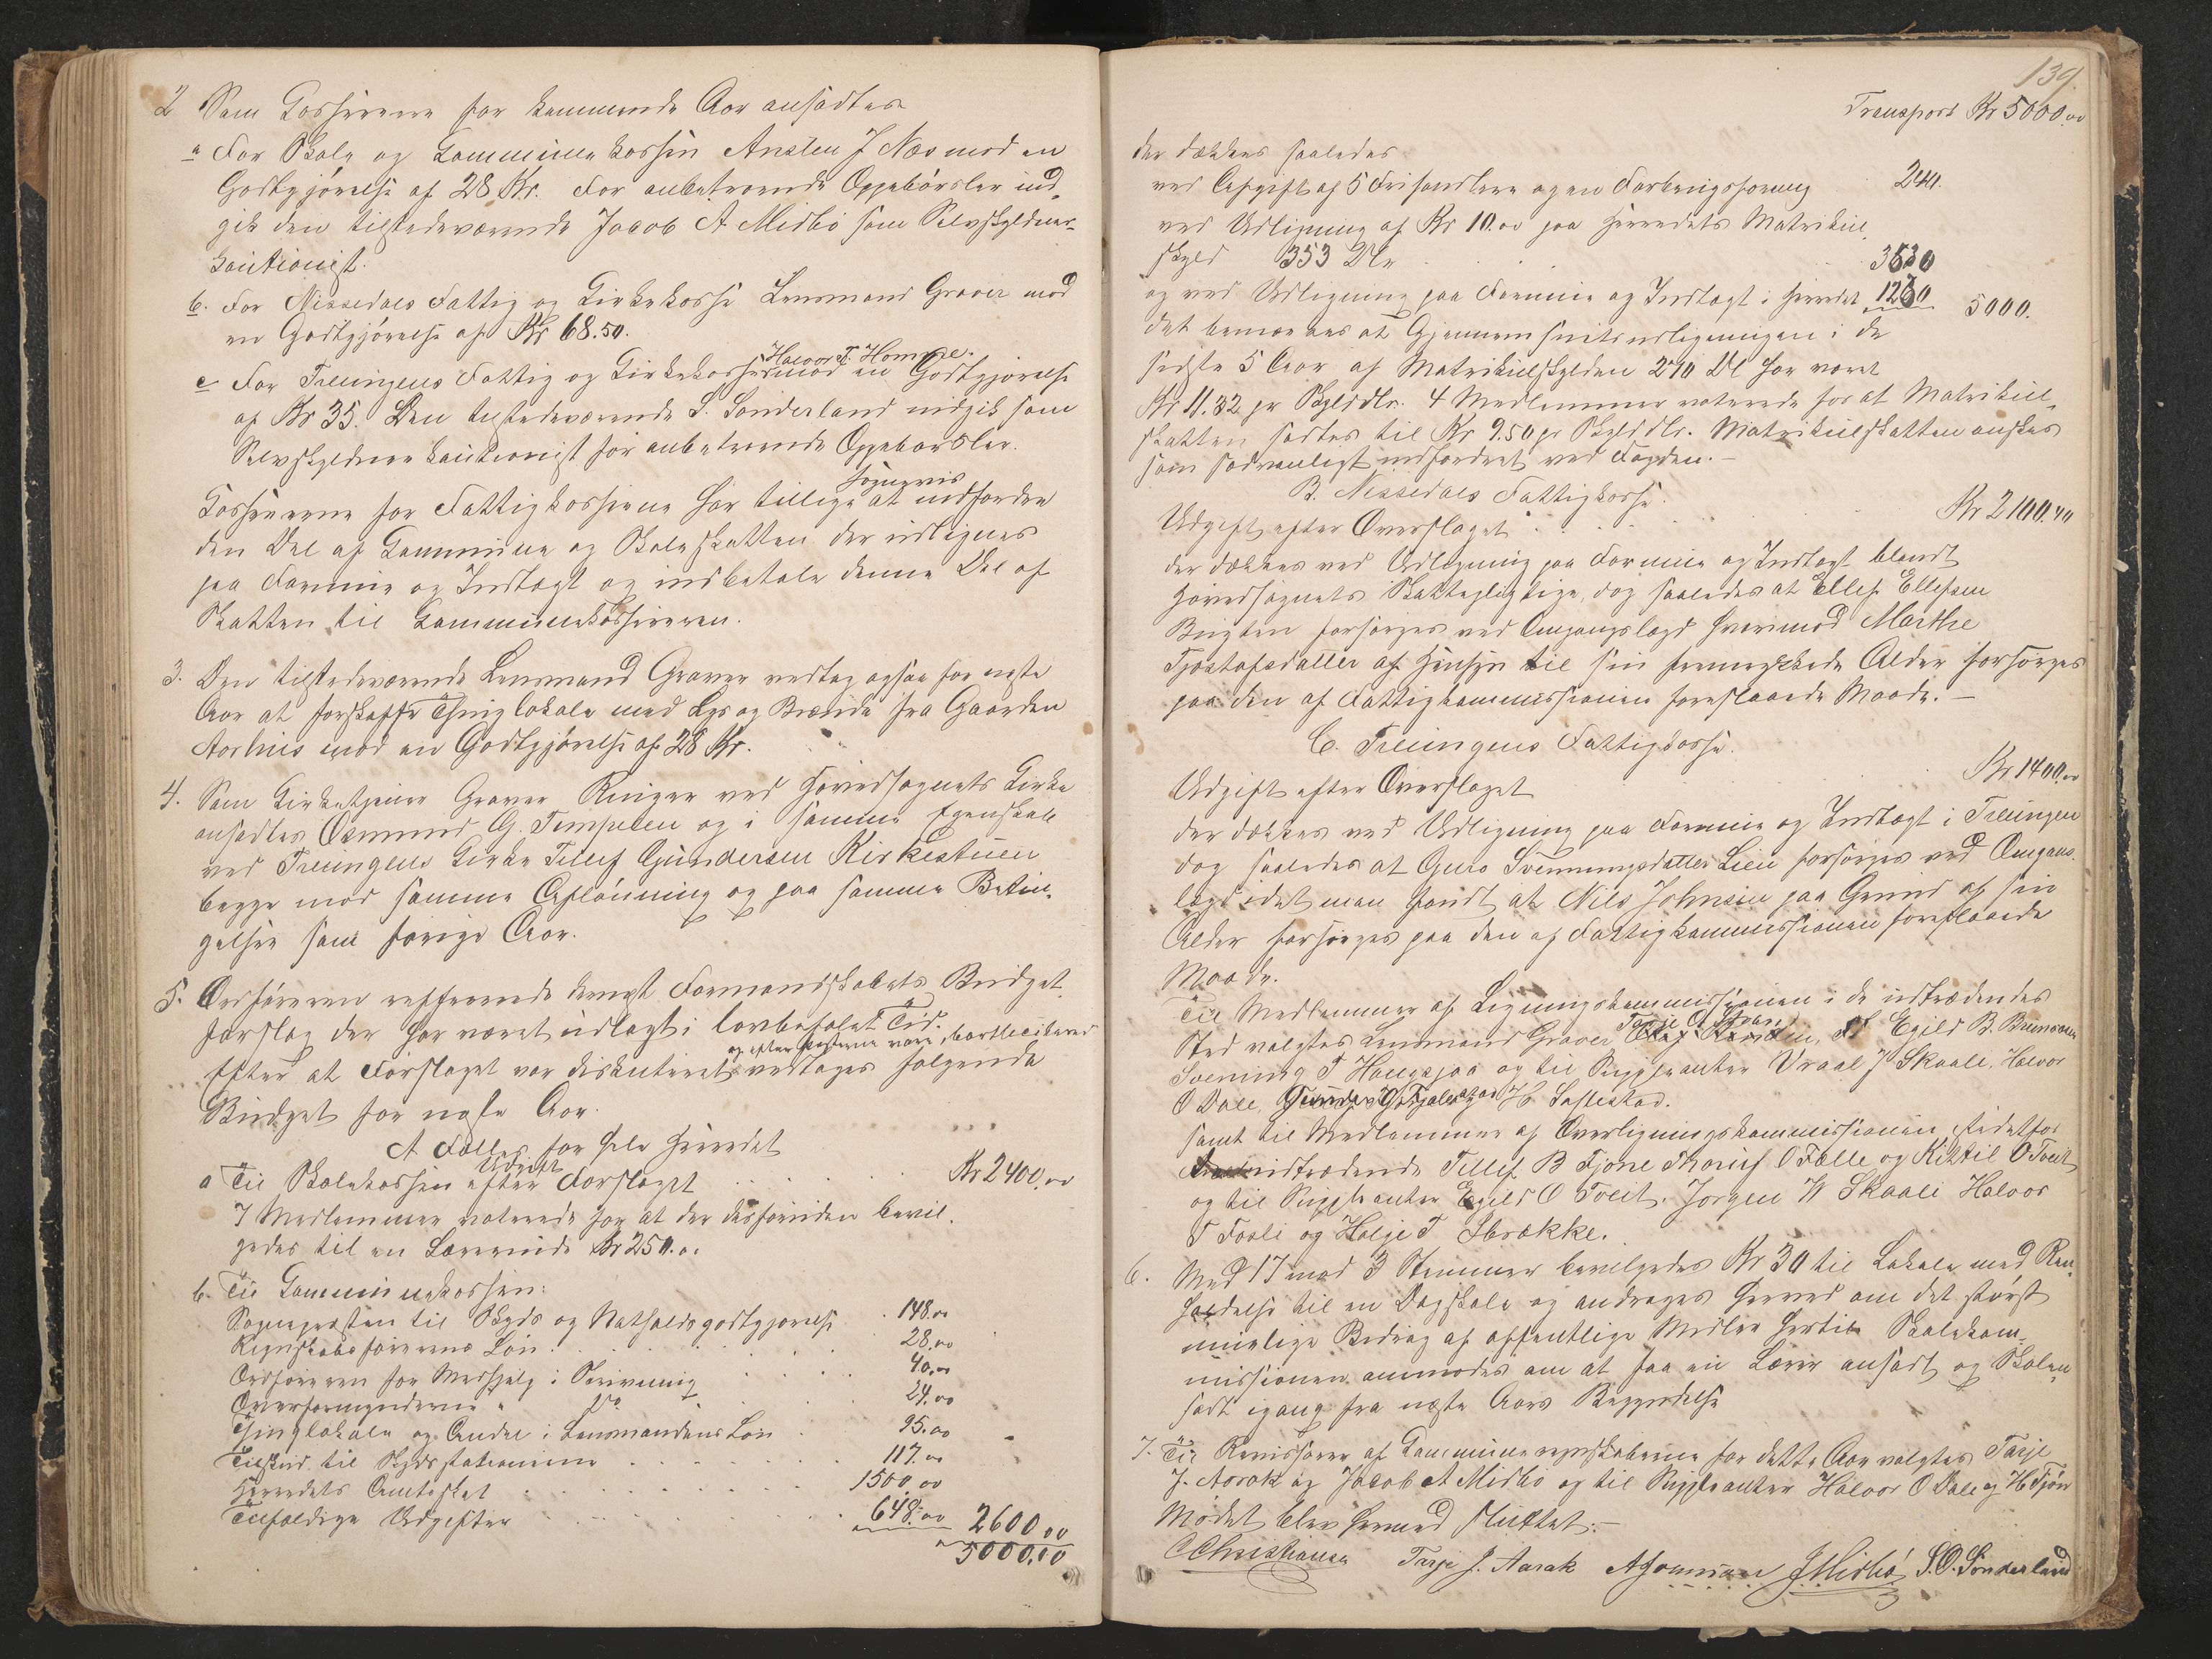 2 Som Kasserere for kommende Aar ansattes
a For Skole og Kommunekassen Anslen J Næs mod en
Godtgjørelse af 28 Kr. For anbetroende Oppebørsler ind-
gik den tilstedeværende Jacob A Midbö som Selvskyldner-
kautionist.
b. For Nissedals Fattig og Kirkekasse Lensmand Graver mod
en Godtgjørelse af Kr 68.50.
Halvor T. Homme.
c For Treungens Fattig og Kirkekasse mod en Godtgjørelse
af Kr 35. Den tilstedeværende S. Sönderland indgik som
Selvskyldner kautionist for anbetroende Oppebørsler.
sognevis
Kassererne for Fattigkasserne har tillige at indfordre
den Del af Kommune og Skoleskatten der udlignes
paa Formue og Indtægt og indbetale denne Del af
Skatten til Kommunekassereren.
3. Den tilstedeværende Lensmand Graver vedtog ogsaa for næste
Aar at forskaffe Thinglokale med Lys og Brænde fra Gaarden
Aarhus mod en Godtgjørelse af 28 Kr.
4. Som Kirketjener Graver Ringer ved Hovedsognets Kirke
ansattes Osmund G. Tempelen og i samme Egenskab
ved Treungens Kirke Tellef Gundersen Kirkestuen
begge mod samme Aflønning og paa samme Betin-
gelser som forrige Aar.
5. Ordføreren refererede dernæst Formandskabets Budget-
forslag der har været udlagt i lovbefalet Tid.
og efter Posterne vare bortlevered
Efter at Forslaget var diskuteret vedtoges følgende
Budget for næste Aar.
A Fælles for hele Herredet
Udgift
a Til Skolekassen efter Forslaget Kr 2400.00
7 Medlemmer voterede for at der desforuden bevil-
gedes til en Lærerinde Kr 250.00
b. Til Kommunekassen:
Sognepresten til Skyds og Natholdsgodtgjørelse 148.00
Regnskabsførerens Løn 28.00
Ordføreren for Medhjælp i Skrivning 40.00
Overformynderne " Do 24.00
Thinglokale og Andel i Lensmandens Løn 95.00
Tilskud til Skydsstationerne 117.00
Herredets Amtsskat 1500.00
Tilfældige Udgifter 648.00 2600.00
5000.00
139.
Transport Kr 5000.00
der dækkes saaledes
ved Afgift af 5 Frihandlere og en Farbergsforening 240.
ved Udligning af Kr 10.00 paa Herredets Matrikul-
skyld 353 Dlr 3530
og ved Udligning paa Formue og Indtægt i Herredet 1230 5000.
det bemærkes at Gjennemsnitsudligningen i de
sidste 5 Aar af Matrikulskylden 270 Dl har været
Kr 11.32 pr Skylddlr. 4 Medlemmer voterede for at Matrikul-
skatten sattes til Kr 9.50 pr Skylddlr. Matrikulskatten ønskes
som sædvanligt indfordret ved Fogden.—
B. Nissedals Fattigkasse.
Udgift efter Overslaget Kr 2100.00
der dækkes ved Udligning paa Formue og Indtægt blandt
Hovedsognets Skattepligtige, dog saaledes at Ellef Ellefsen
Bugten forsørges ved Omgangslægd hvorimod Marthe
Tjostafsdatter af Hensyn til sin fremrykkede Alder forsørges
paa den af Fattigkommissionen foreslaaede Maade.—
C. Treungens Fattigkasse.
Udgift efter Overslaget Kr 1400.00
der dækkes ved Udligning paa Formue og Indtægt i Treungen
dog saaledes at Guro Svenningsdatter Lien forsørges ved Omgans-
lægd idet man fandt at Nils Johnsen paa Grund af sin
Alder forsørges paa den af Fattigkommissionen foreslaaede
Maade.
Til Medlemmer af Ligningskommissionen i de udtrædendes
Sted valgtes Lensmand Graver, Egild B. Brunaaen
Svening T Haugsjaa og til Suppleanter Vraal J Skaale, Halvor
O Dale, H. Laftestad.
samt til Medlemmer af Overligningskommissionen istedetfor
udtrædende Tellef B Fjone Thorius O Felle og Kittil O Tveit
og til Suppleanter Egild O Tveit. Jørgen W Skaali Halvor
T Fosli og Helje T Sbrække.
6. Med 17 mod 3 Stemmer bevilgedes Kr 30 til Lokale med Ren-
holdelse til en Dagskole og andrages herved om det størst
mulige Bidrag af offentlige Midler hertil Skolekom-
missionen anmodes om at faa en Lærer ansat og Skolen
sadt igang fra næste Aars Begyndelse
7. Til Revisorer af Kommuneregnskaberne for dette Aar valgtes Tarje
J. Aarak og Jacob A Midbö og til Suppleanter Halvor O Dale og H Fjön
Mødet blev hermed sluttet.—
C Christiansen Tarje J. Aarak J Midbö S.O. Sönderland